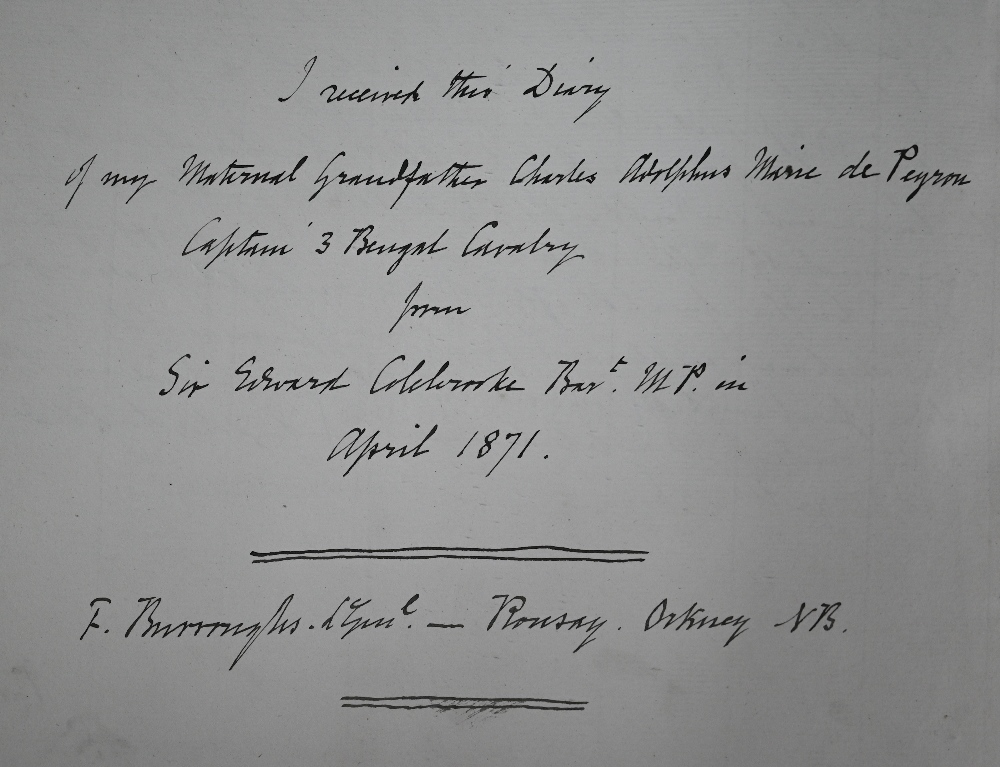 I received this Diary
of my Maternal Grandfather Charles Adolphus Marie de Peyron
Captain 3 Bengal Cavalry
from
Sir Edward Colebrooke Bart. M P. in
April 1871.
F. Burroughs. LGenl. — Rousay. Orkney NB.